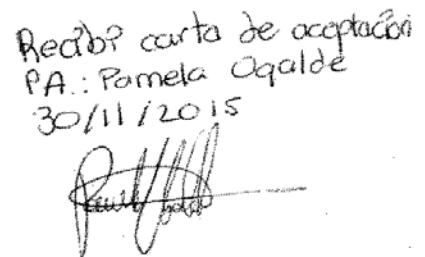 Recibí carta de aceptación
P.A.: Pamela Ogalde
30/11/2015